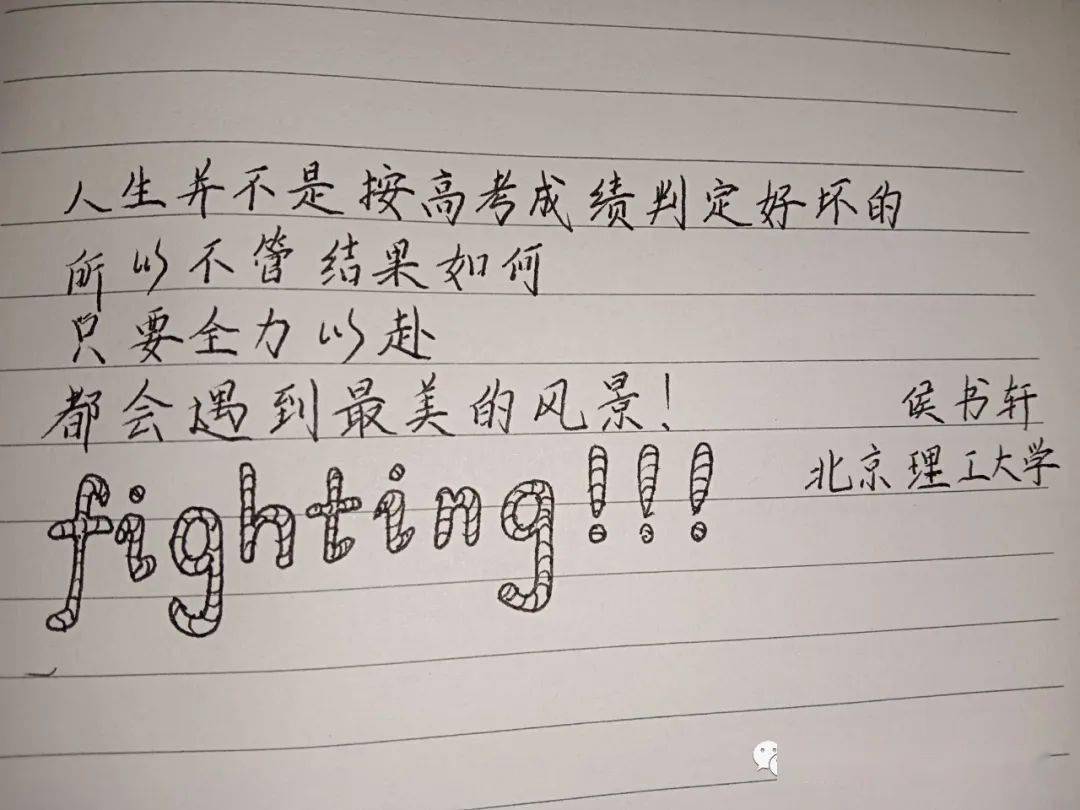 人生并不是按高考成绩判定好坏的
所以不管结果如何
只要全力以赴
都会遇到最美的风景！
侯书轩
北京理工大学
fighting!!!